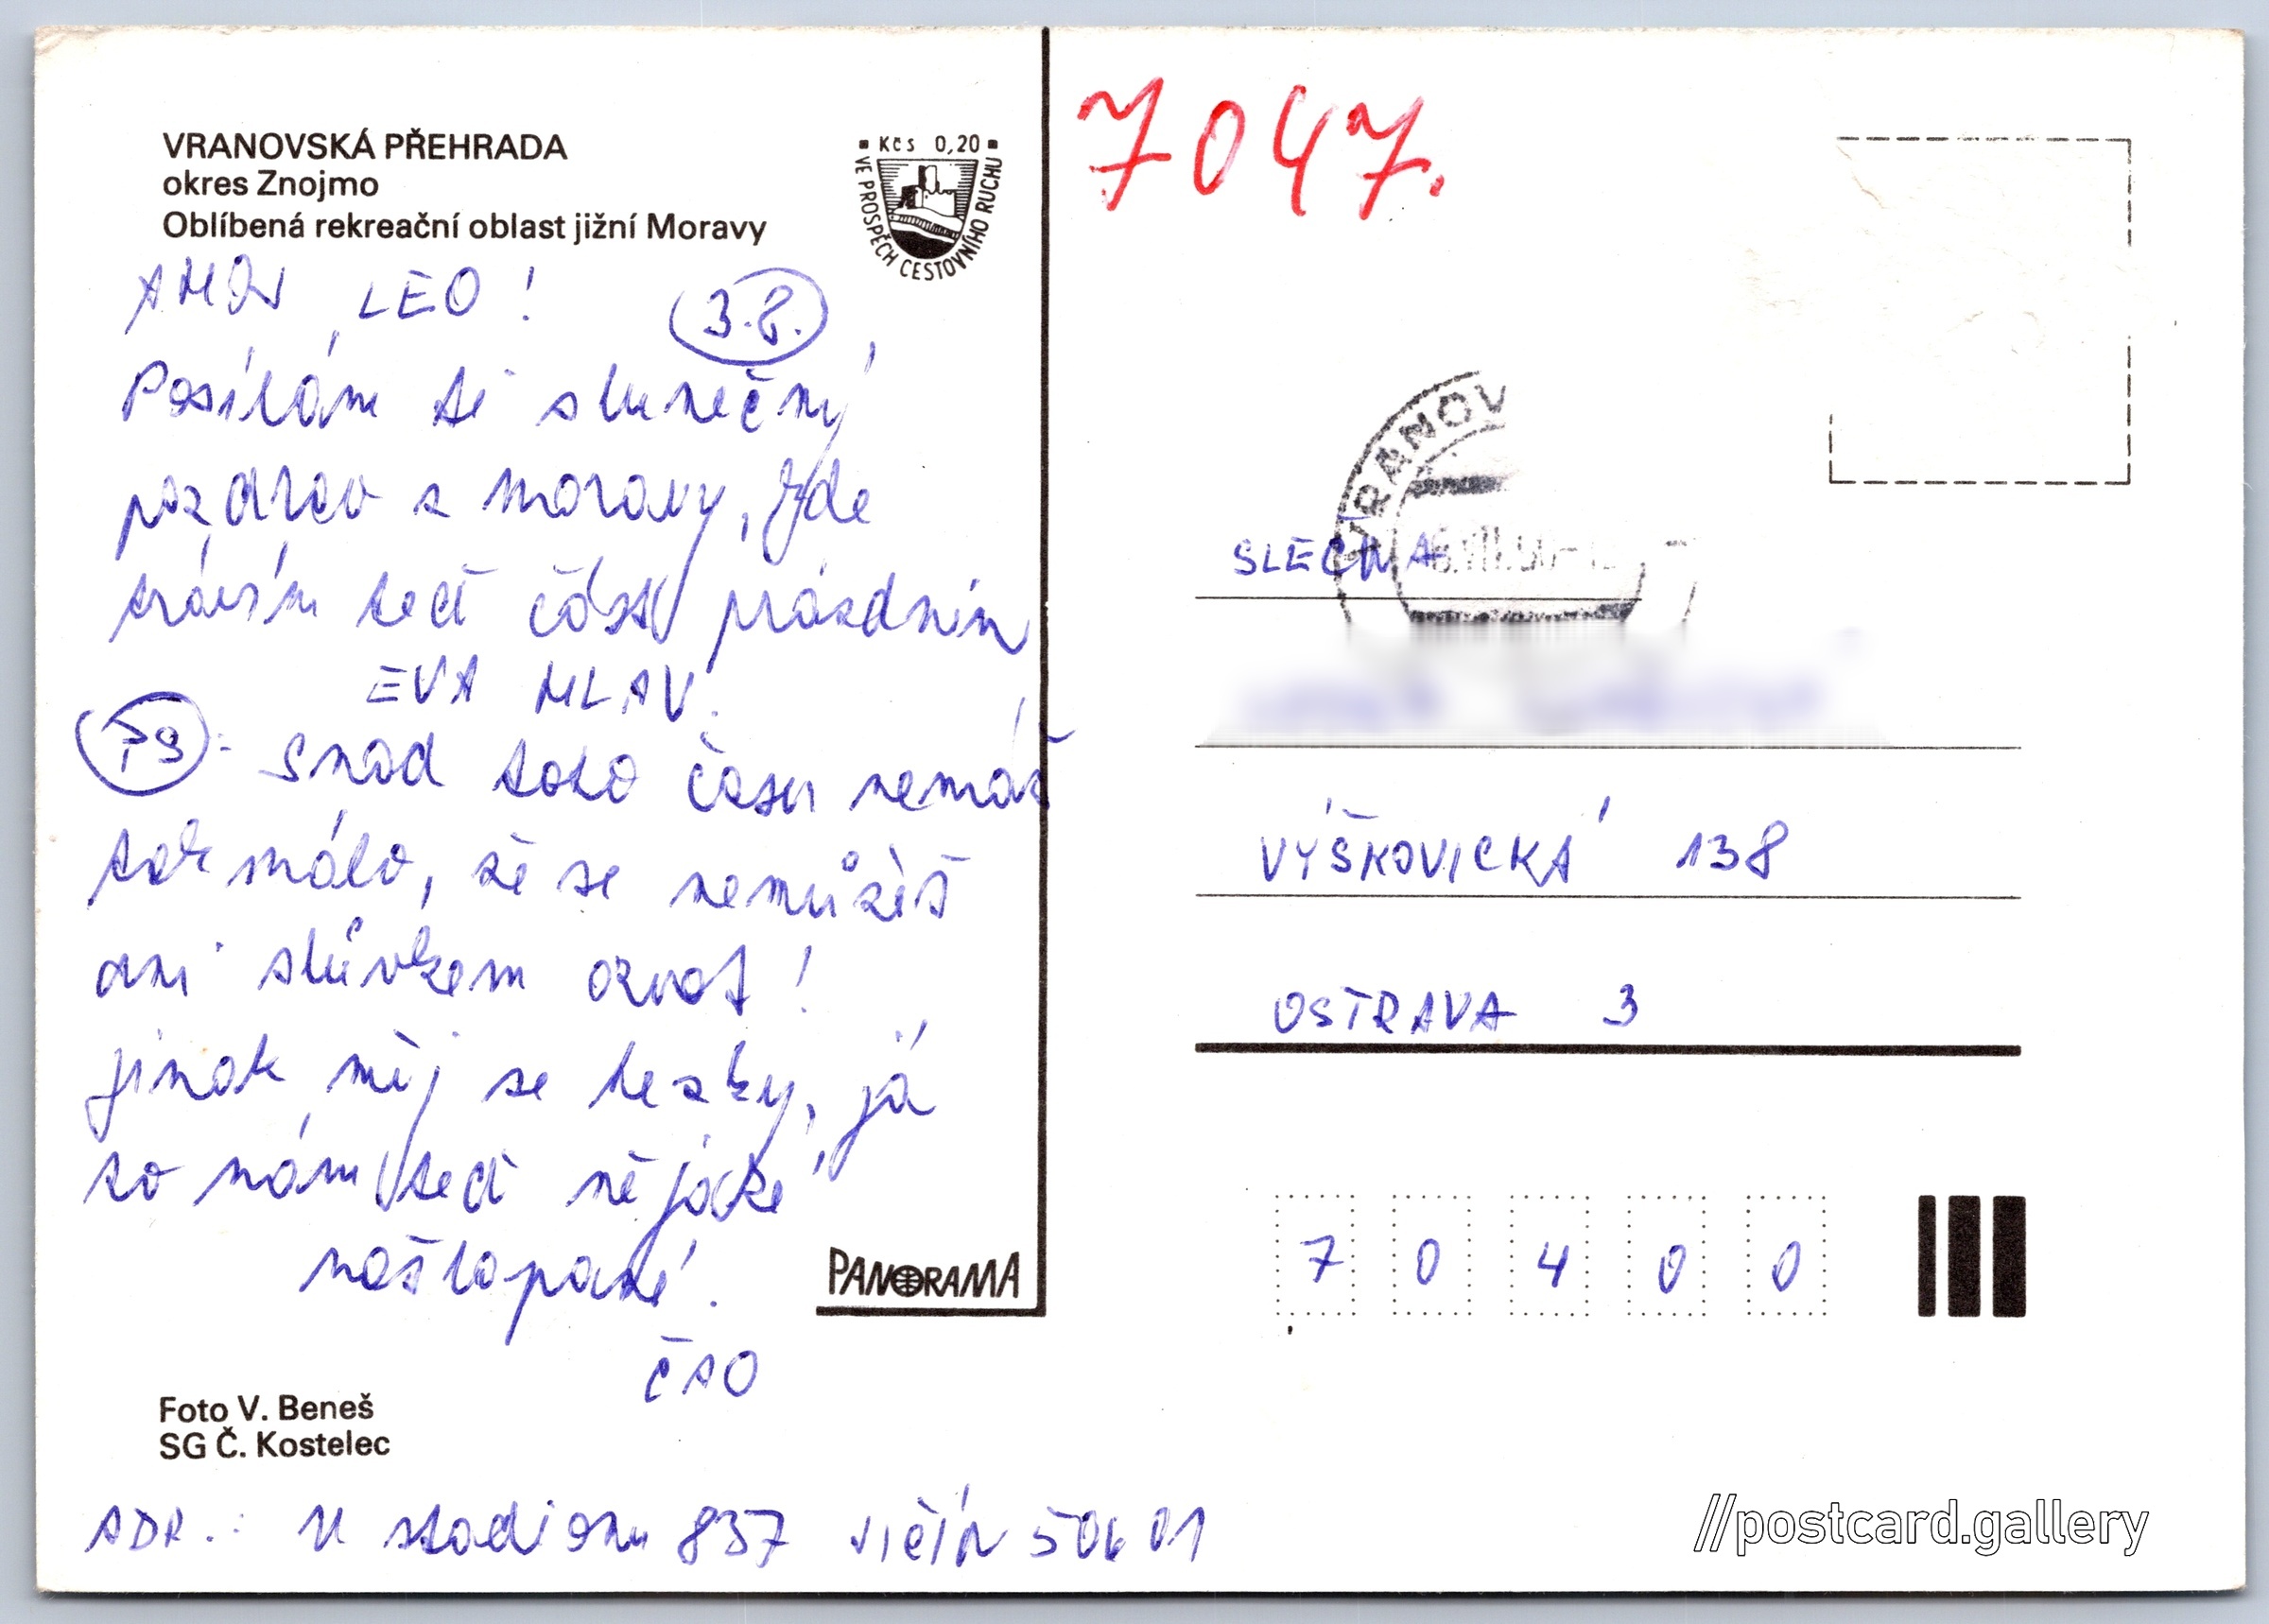 VRANOVSKÁ PŘEHRADA
okres Znojmo
Oblíbená rekreační oblast jižní Moravy
Kčs 0,20
VE PROSPĚCH CESTOVNÍHO RUCHU
AHOJ LEO!
3.8.
Posílám ti slunečný
pozdrav z moravy, kde
trávím teď část prázdnin
EVA MLAV.
PS: Snad toho času nemáš
tak málo, že se nemůžeš
ani slůvkem ozvat!
jinak měj se hezky, já
to mám teď nějaké
našlapané!
ČAO
PANORAMA
Foto V. Beneš
SG Č. Kostelec
ADR.: U stadionu 837 JIČÍN 50601
7047.
VRANOV
SLEČNA
VÝŠKOVICKÁ 138
OSTRAVA 3
7 0 4 0 0
//postcard.gallery